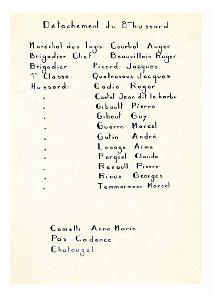 Détachement du 8ème hussard
Maréchal des logis Courbot Auger
Brigadier Chef. Beauvillain Roger
Brigadier Picard Jacques
1° Classe: Quatrevaux Jacques
Hussard: Cadio Roger
" Castel Jean dit le barbu
" Gibault Pierre
" Gibout Guy
" Guerre Marcel
" Gutin André
" Lesage Aimé
" Parquel Claude
" Renault Pierre
" Rioux Georges
" Temmermann Marcel
Cometti Anne Marie
Pas Cadence
Chatouzel